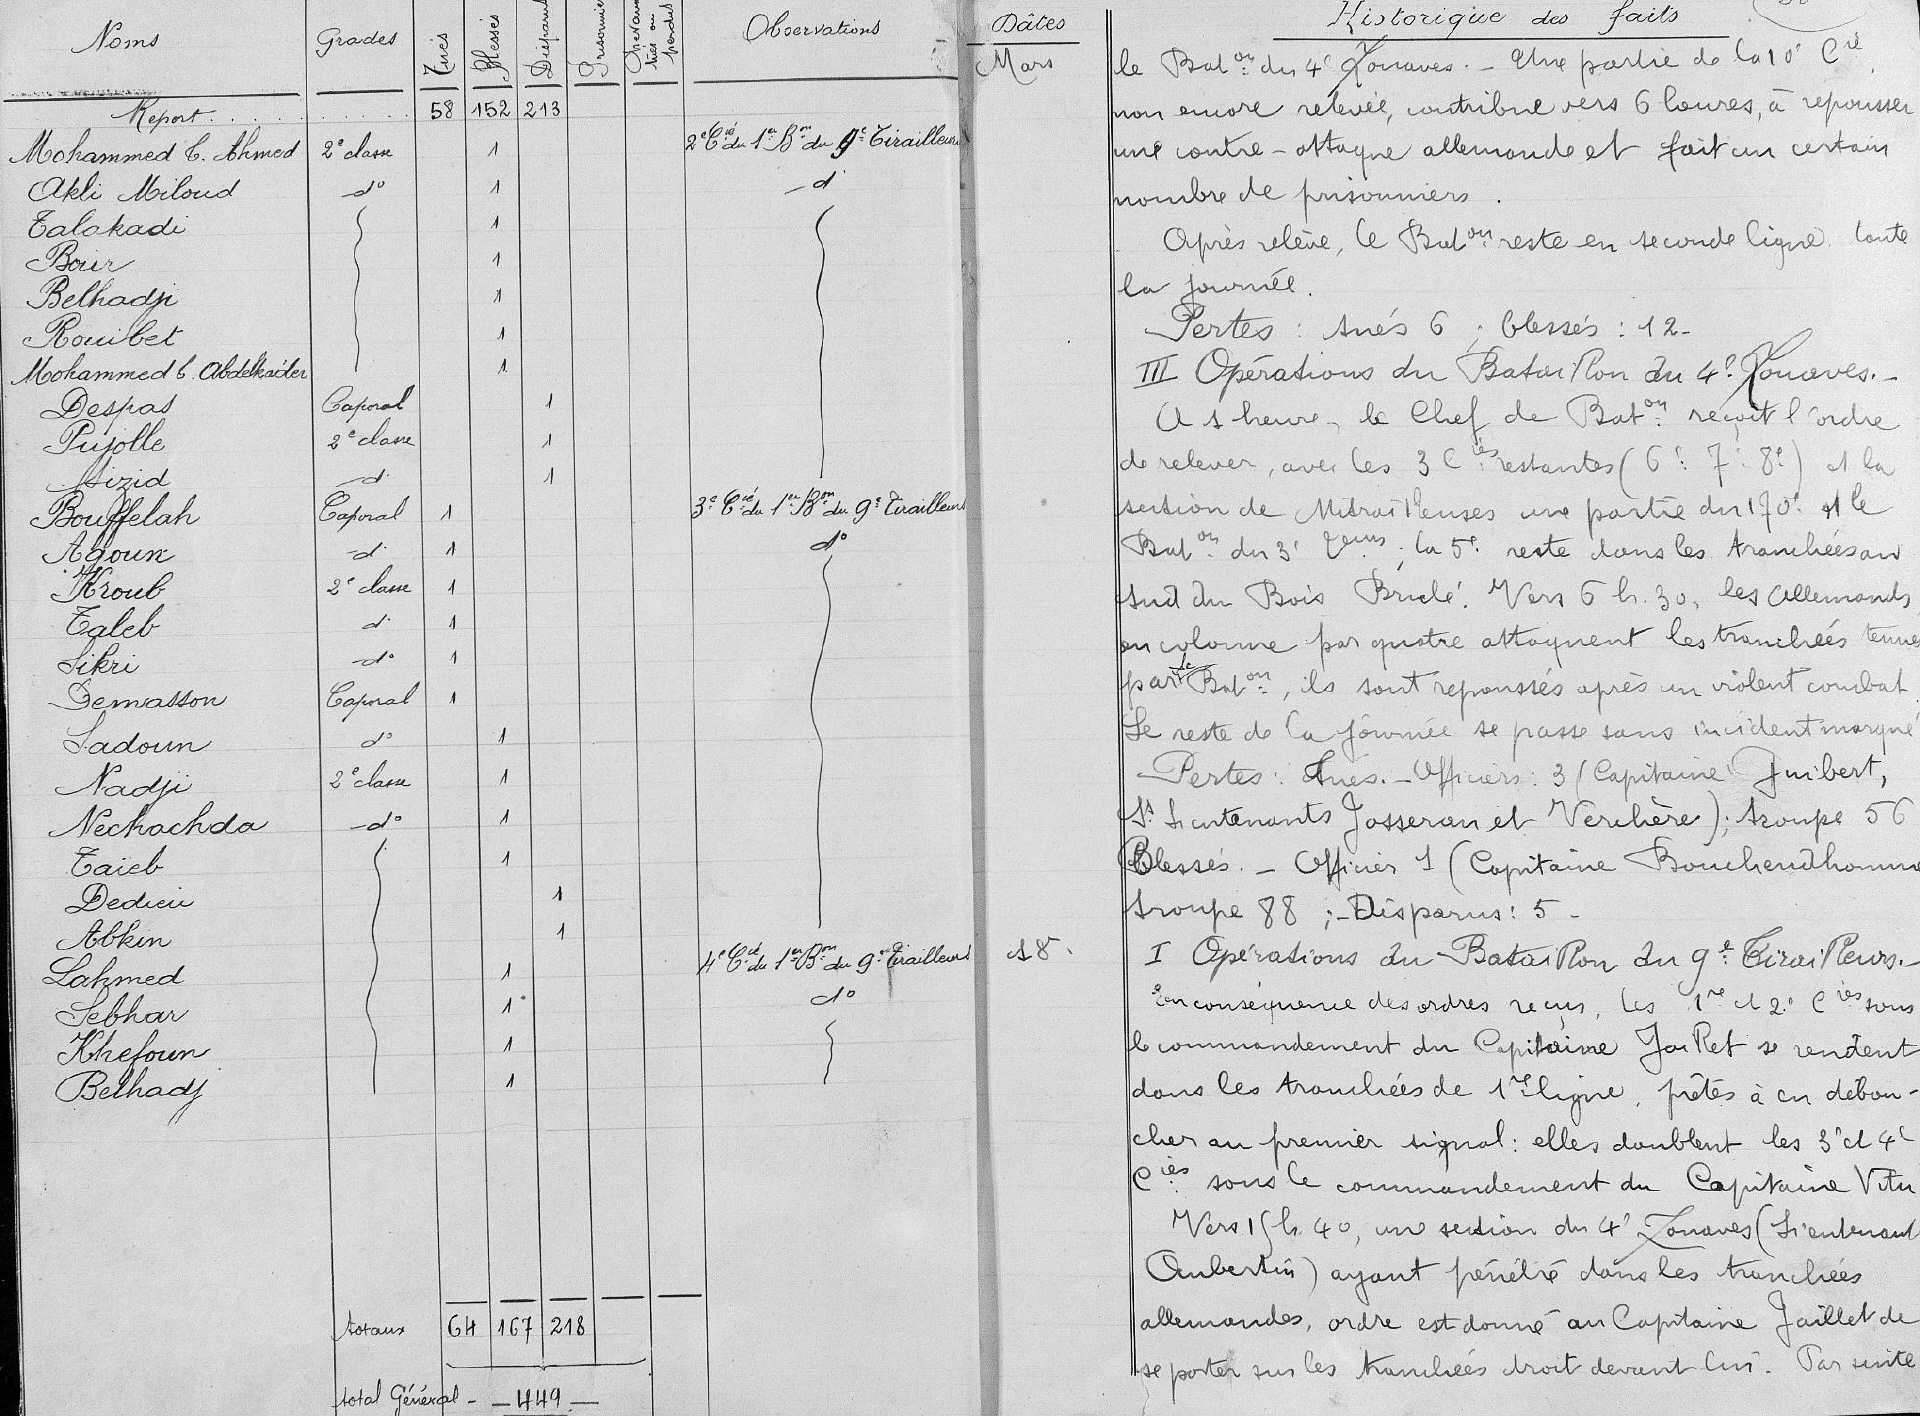 Noms Grades Tués Blessés Disparus Prisonniers Chevaux tués ou perdus Observations
Report. . . . . . . . . . 58 152 213
Mohammed b. Ahmed 2e classe 1 2e Cié du 1er Bon du 9e Tirailleurs
Akli Miloud - do 1 - do
Talakadi 1
Bour 1
Belhadji 1
Rouibet 1
Mohammed b. Abdelkader 1
Despas Caporal 1
Pujolle 2e classe 1
Sizid - d. 1
Bouffelah Caporal 1 3e Cié du 1er Bon du 9e Tirailleurs
Agoun - d. 1 do
Kroub 2e classe 1
Taleb d. 1
Sikri - do 1
Demasson Caporal 1
Sadoun do 1
Nadji 2e classe 1
Nechachda - do 1
Taieb 1
Dedieu 1
Abkin 1
Lahmed 1 4e Cié du 1er Bon du 9e Tirailleurs
Sebhar 1 do
Khefoun 1
Belhadj 1
totaux 64 167 218
total Général - - 449 -
Dâtes Historique des faits
Mars le Baton du 4e Zouaves. - Une partie de la 10e Cie
non encore relevée, contribue vers 6 heures, à repousser
une contre-attaque allemande et fait un certain
nombre de prisonniers.
Après relève, le Baton reste en seconde ligne toute
la journée.
Pertes : tués 6 ; blessés : 12 -
III Opérations du Bataillon du 4e Zouaves. -
A 1 heure, le Chef de Baton reçoit l'ordre
de relever, avec les 3 Cies restantes (6e 7e 8e) et la
section de Mitrailleuses une partie du 170e et le
Baton du 3e ; la 5e reste dans les tranchées au
sud du Bois Brûlé. Vers 6 h. 30, les allemands
en colonne par quatre attaquent les tranchées tenues
par le Baton, ils sont repoussés après un violent combat
Le reste de la journée se passe sans incident marqué
Pertes : tués. - Officiers : 3 (Capitaine Juibert,
St Lieutenants Josseran et Verchère) ; troupe 56
Blessés. - Officier 1 (Capitaine Bouchendhomme
troupe 88 ; - Disparus : 5 -
18. I Opérations du Bataillon du 9e Tirailleurs. -
En conséquence des ordres reçus, les 1re et 2e Cies sous
le commandement du Capitaine Jaillet se rendent
dans les tranchées de 1re ligne, prêtes à en débou-
cher au premier signal : elles doublent les 3e et 4e
Cies sous le commandement du Capitaine Vitu
Vers 15 h. 40, une section du 4e Zouaves (Lieutenant
Aubertin) ayant pénétré dans les tranchées
allemandes, ordre est donné au Capitaine Jaillet de
se porter sur les tranchées droit devant lui. Par suite